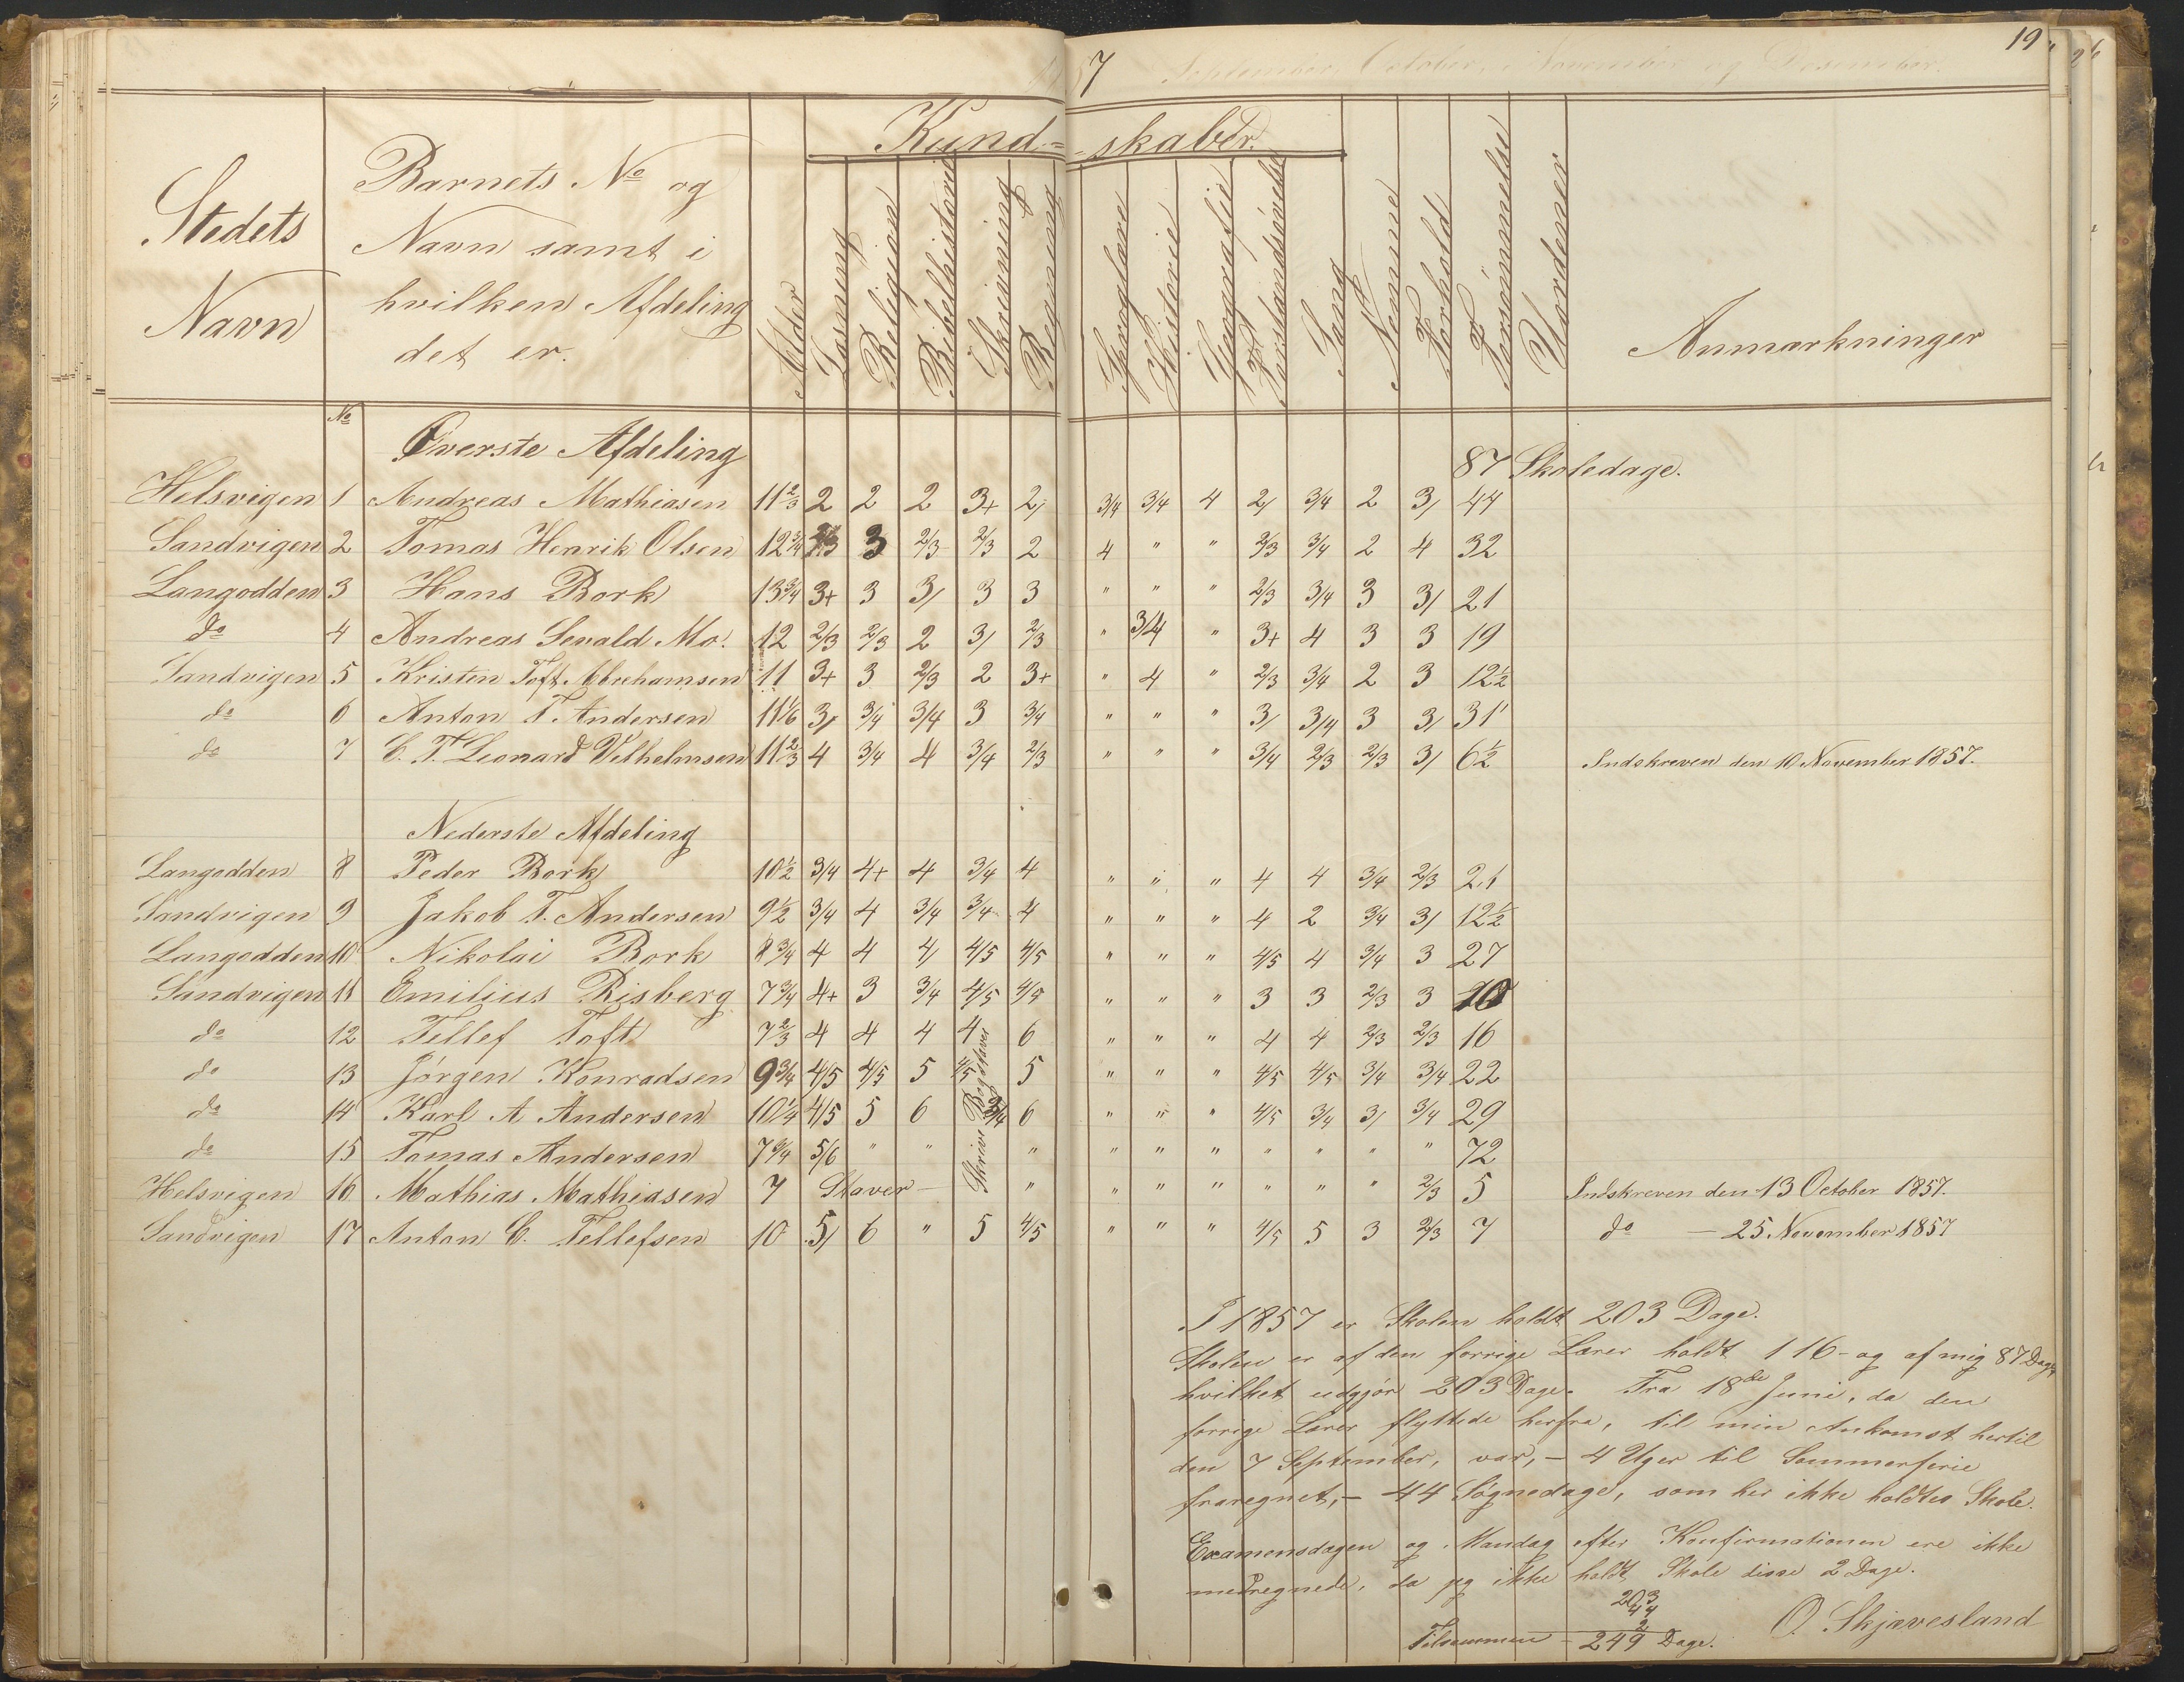 7 September, October, November og Desember. 19
Kund- -skaber.
Stedets Navn
Barnets No og
Navn samt i
hvilken Afdeling
det er.
Alder
Læsning
Religion
Bibelhistorie
Skrivning
Regning
Sproglære
Historie
Geografie
Forstandsövelse
Sang
Nemme
Forhold
Forsömmelse
Uordener
Anmærkninger
No
Øverste Afdeling 87 Skoledage.
Helsvigen 1 Andreas Mathiasen 11 2/3 2 2 2 3+ 2/ 3/4 3/4 4 2/ 3/4 2 3/ 44
Sandvigen 2 Tomas Henrik Olsen 12 3/4 2/3 3 2/3 2/3 2 4 " " 2/3 3/4 2 4 32
Langodden 3 Hans Bork 13 3/4 3+ 3 3/ 3 3 " " " 2/3 3/4 3 3/ 21
do 4 Andreas Sevald Mo. 12 2/3 2/3 2 3/ 2/3 " 3/4 " 3+ 4 3 3 19
Sandvigen 5 Kristen Toft Abrehamsen 11 3+ 3 2/3 2 3+ " 4 " 2/3 3/4 2 3 12 1/2
do 6 Anton T. Andersen 11 1/6 3/ 3/4 3/4 3 3/4 " " " 3/ 3/4 3 3/ 31
do 7 C. T. Leonard Vilhelmsen 11 2/3 4 3/4 4 3/4 2/3 " " " 3/4 2/3 2/3 3/ 6 1/2 Indskreven den 10 November 1857.
Nederste Afdeling
Langodden 8 Peder Bork 10 1/2 3/4 4+ 4 3/4 4 " " " 4 4 3/4 2/3 21
Sandvigen 9 Jakob T. Andersen 9 1/2 3/4 4 3/4 3/4 4 " " " 4 2 3/4 3/ 12 1/2
Langodden 10 Nikolai Bork 8 3/4 4 4 4/ 4/5 4/5 " " " 4/5 4 3/4 3 27
Sandvigen 11 Emilius Risberg 7 3/4 4+ 3 3/4 4/5 4/5 " " " 3 3 2/3 3 10
do 12 Tellef Toft 7 2/3 4 4 4 4 6 " " " 4 4 2/3 2/3 16
do 13 Jörgen Konradsen 9 3/4 4/5 4/5 5 4/5 5 " " " 4/5 4/5 3/4 3/4 22
do 14 Karl A Andersen 10 1/4 4/5 5 6 3/4 6 " " " 4/5 3/4 3/ 3/4 29
do 15 Tomas Andersen 7 3/4 5/6 " " " " " " " " " " 72
Helsvigen 16 Mathias Mathiasen 7 Staver — " " " " " " " 2/3 5 Indskreven den 13 October 1857.
Sandvigen 17 Anton C. Tellefsen 10 5/ 6 " 5 4/5 " " " 4/5 5 3 2/3 7 do — 25 November 1857
Skrive Bogstaver
I 1857 er Skolen holdt 203 Dage.
Skolen er af den forrige Lærer holdt 116 - og af mig 87 Dage
hvilket udgjör 203 Dage. Fra 18de Juni, da den
forrige Lærer flyttede herfra, til min Ankomst hertil
den 7 September, var, — 4 Uger til Sommerferie
fraregnet, — 44 Sögnedage, som her ikke holdtes Skole.
Examensdagen og Mandag efter Konfirmationen ere ikke
medregnede, da jeg ikke holdt Skole disse 2 Dage.
203
44
2
Tilsammen - 249 Dage. O. Skjævesland